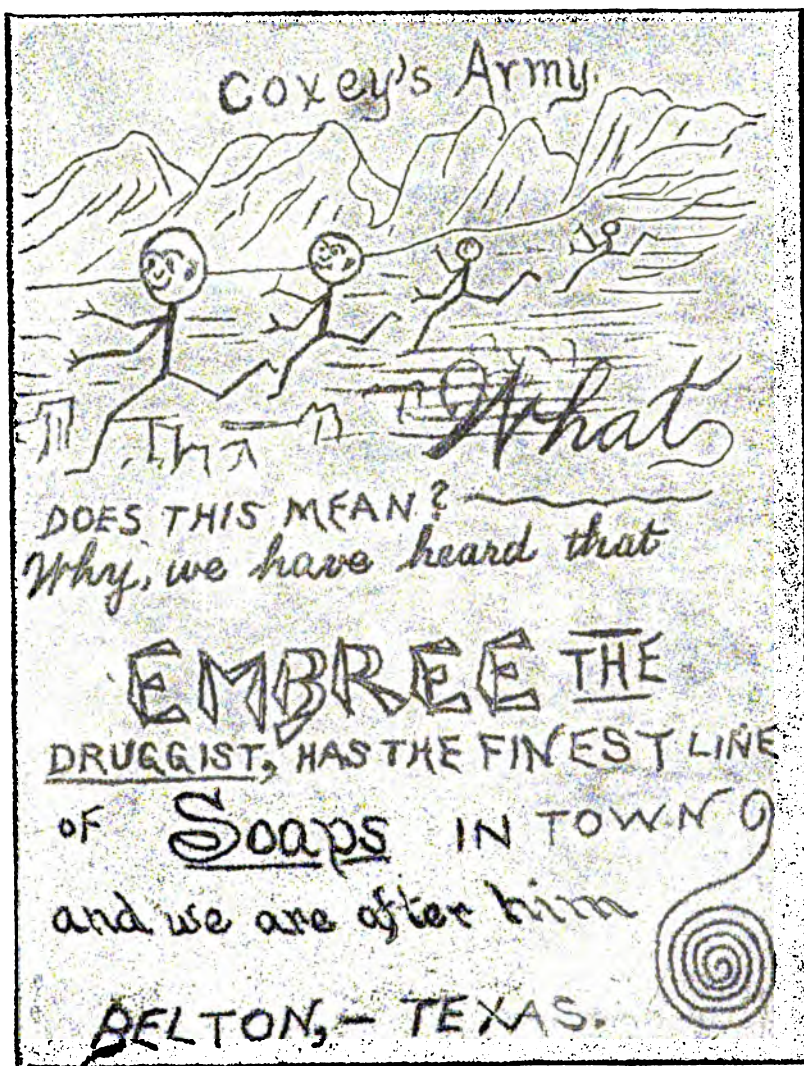 Coxey's Army.
What
DOES THIS MEAN?
Why, we have heard that
EMBREE THE
DRUGGIST, HAS THE FINEST LINE
OF Soaps IN TOWN
and we are after him
BELTON, - TEXAS.